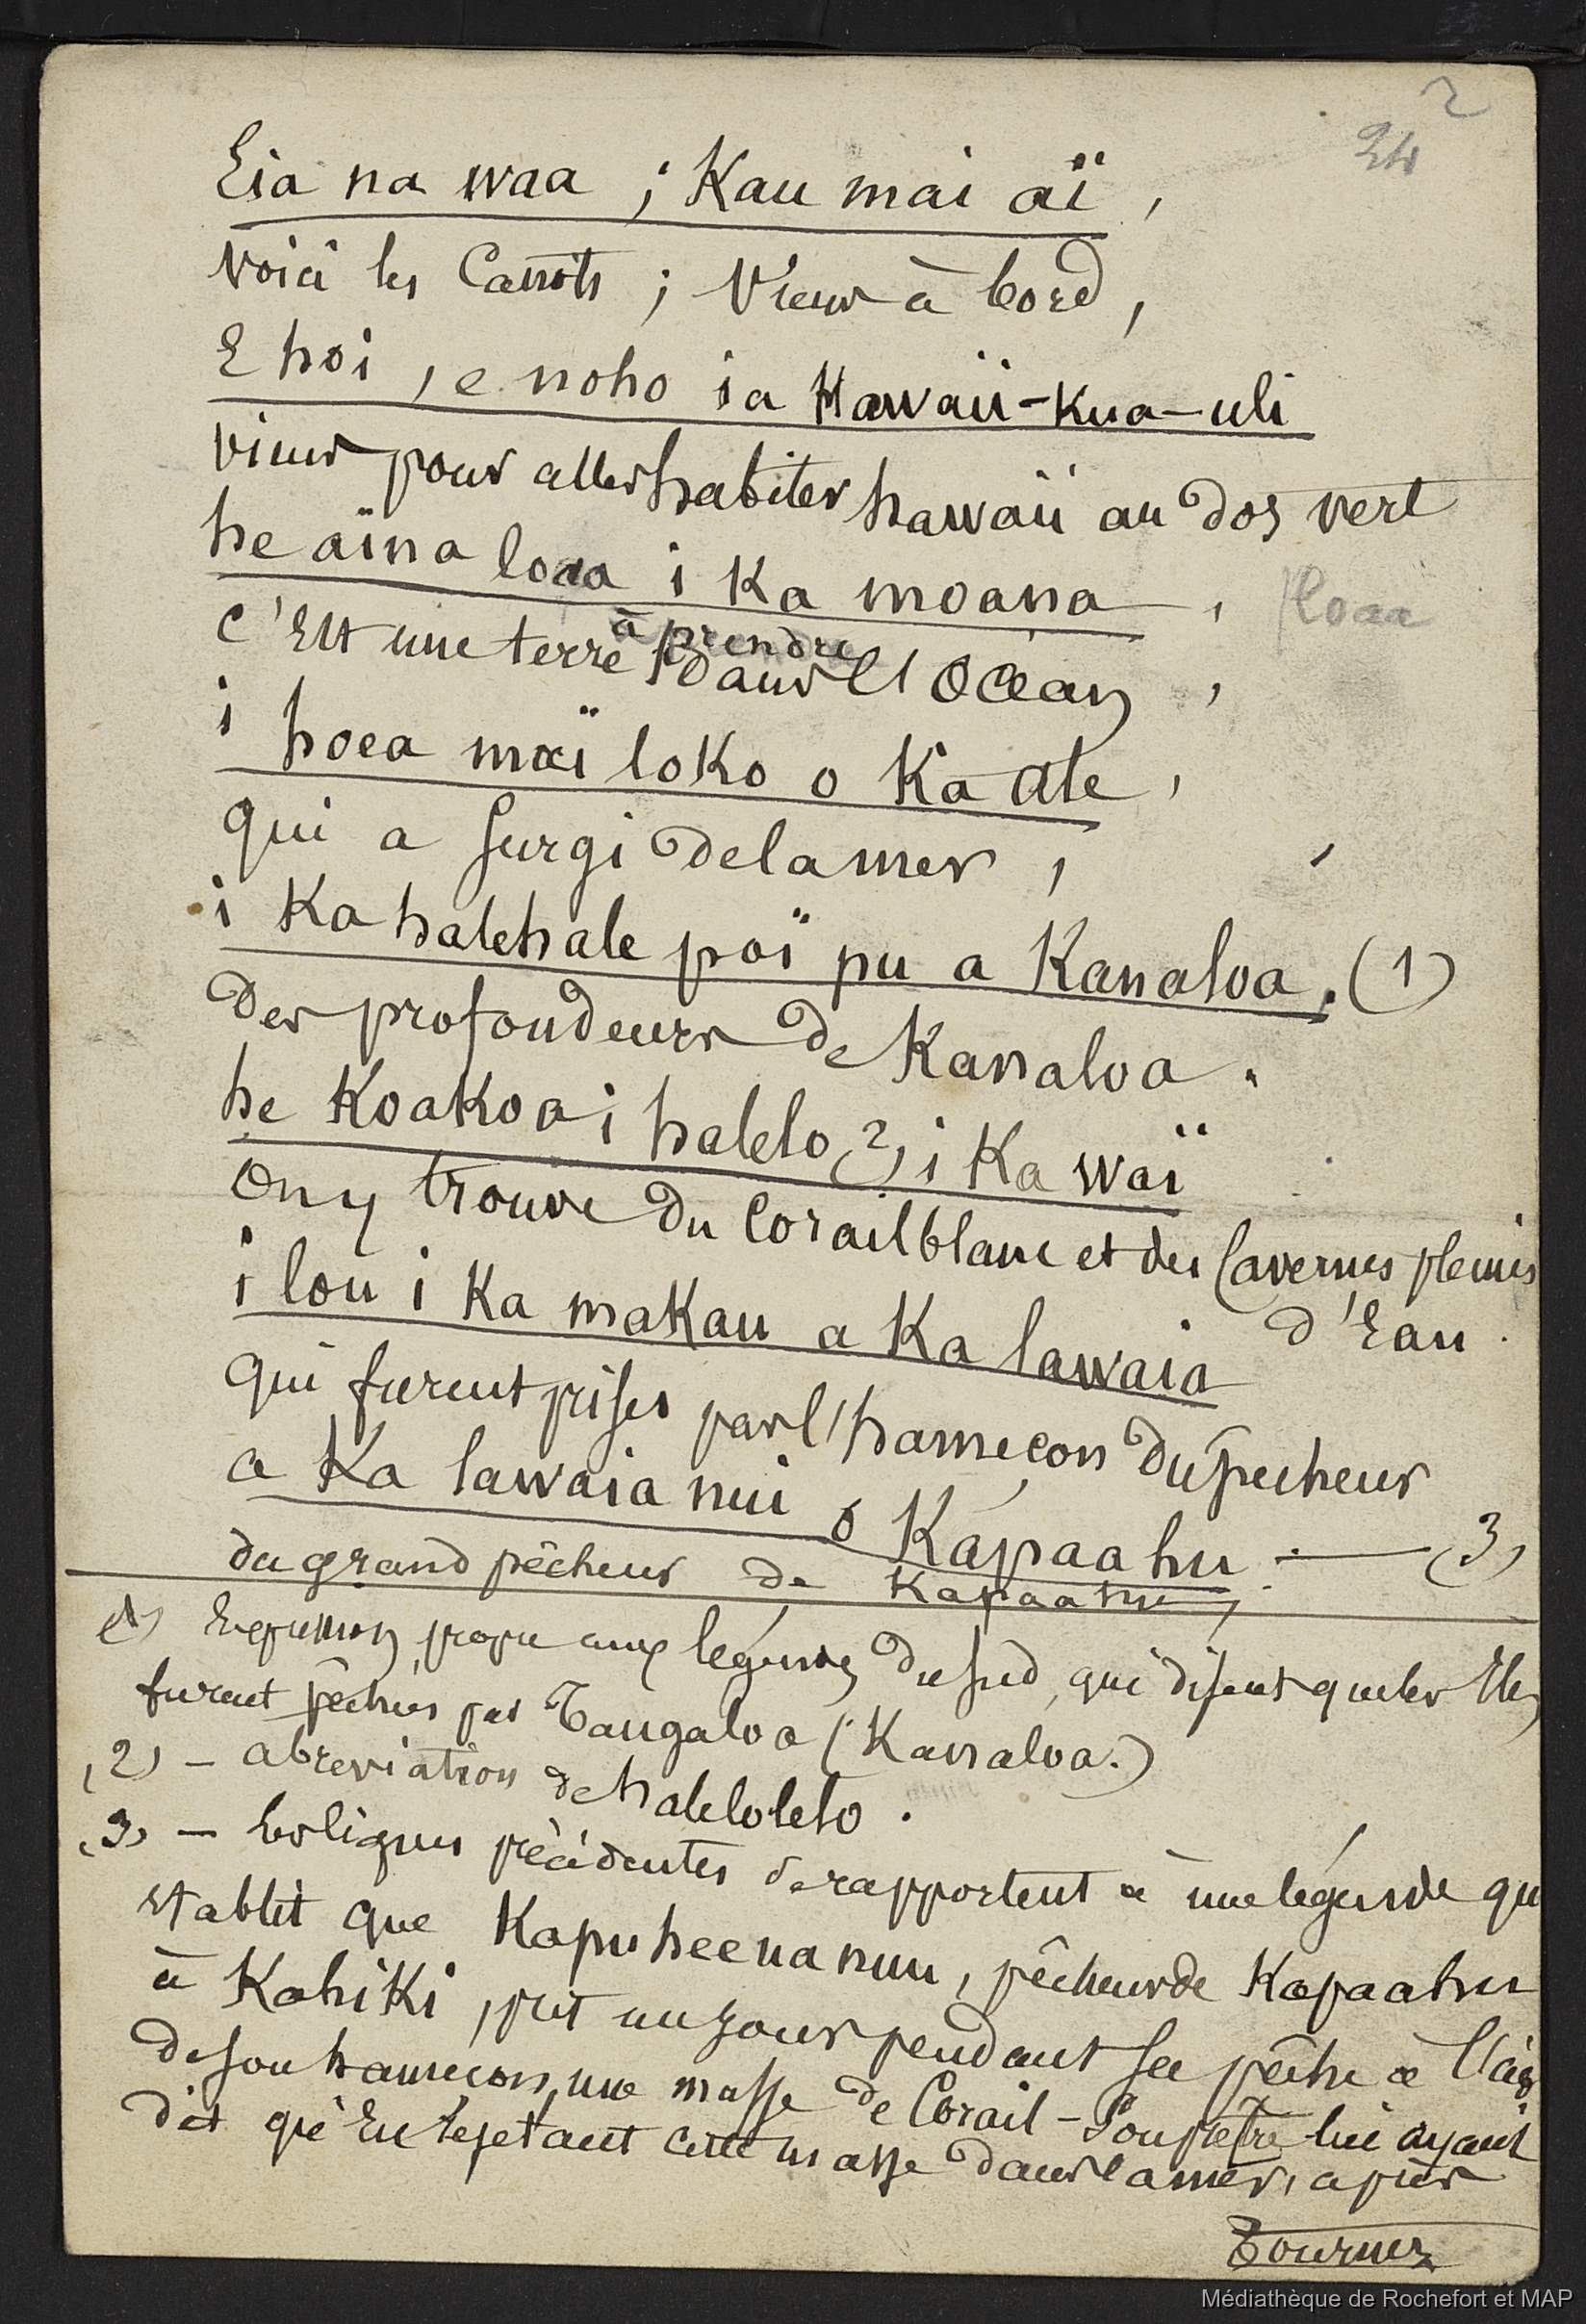 2
24
Eia na waa ; Kau mai aï ,
Voici les Canots ; Viens à bord ,
E hoi , e noho ia Hawaii-Kua-uli
viens pour aller habiter hawaïi au dos vert
he aïna loaa i Ka moana , loaa
à prendre
c'Est une terre dans l'Océan ,
i hoea maï loko o Ka ale ,
qui a surgi de la mer ,
i Ka halehale poï pu a Kanaloa . (1)
des profondeurs de Kanaloa .
he KoaKoa i halelo (2) i Ka waï
on y trouve du Corail blanc et des Cavernes pleines
d'Eau .
i lou i Ka maKau a Ka lawaia
qui furent prises par l'hameçon du pecheur
a Ka lawaia nui o Kapaahu . — (3)
du grand pêcheur de Kapaahu ,
(1) Expression propre aux légendes du sud, qui disent que les Iles
furent pêchées par Tangaloa (Kanaloa.)
(2) - abreviation de halelolelo .
(3) - les lignes précédentes se rapportent à une légende qui
etablit que Kapuheeuanuu, pêcheur de Kapaahu
à KahiKi, prit un jour pendant sa pêche à l'aide
de son hameçon, une masse de Corail - Son prêtre lui ayant
dit qu'En rejetant cette masse dans la mer, après
Tournez
Médiathèque de Rochefort et MAP